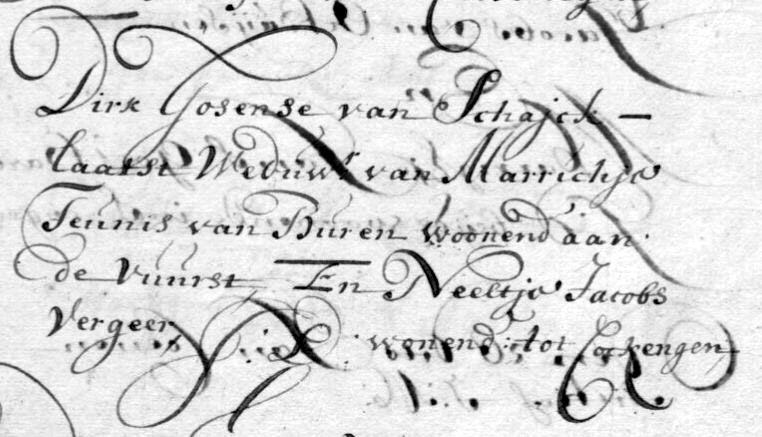 Dirk Gosense van Schajck —
laatst Weduwr van Marrichje
Teunis van Buren woonend aan
de Vuurst, En Neeltje Jacobs
Vergeer wonend: tot Cockengen